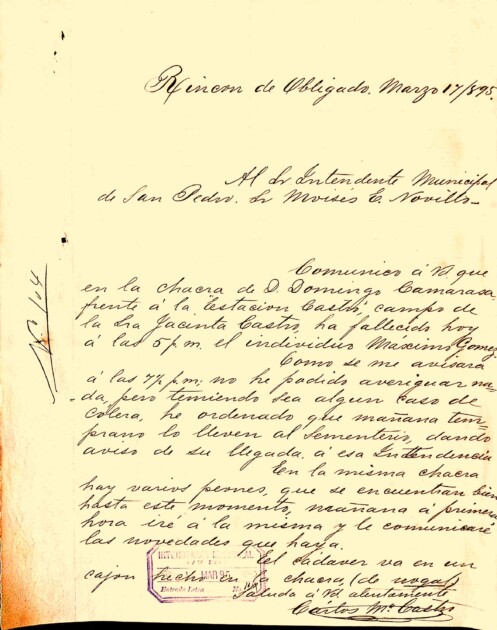 Rincon de Obligado. Marzo 17/895.
Al Sr Intendente Municipal
de San Pedro. Sr Moisés E. Novillo
Nº 104
Comunico á Vd que
en la chacra de D. Domingo Camarasa,
frente á la Estacion Castro, campo de
la Sra Jacinta Castro, ha fallecido hoy
á las 5 p.m. el individuo Máximo Gomez
Como se me avisara
á las 7½ p.m; no he podido averiguar na-
da, pero temiendo sea algun caso de
cólera, he ordenado que mañana tem-
prano lo lleven al Sementerio, dando
aviso de su llegada, á esa Intendencia
En la misma chacra
hay varios peones, que se encuentran bien
hasta este momento, mañana á primera
hora iré á la misma y le comunicaré
las novedades que haya.
El cadáver va en un
cajon hecho en la chacra, (de nogal)
Saluda á Vd atentamente
Carlos M. Castro
INTENDENCIA MUNICIPAL
MAR 95
Entrada Letra